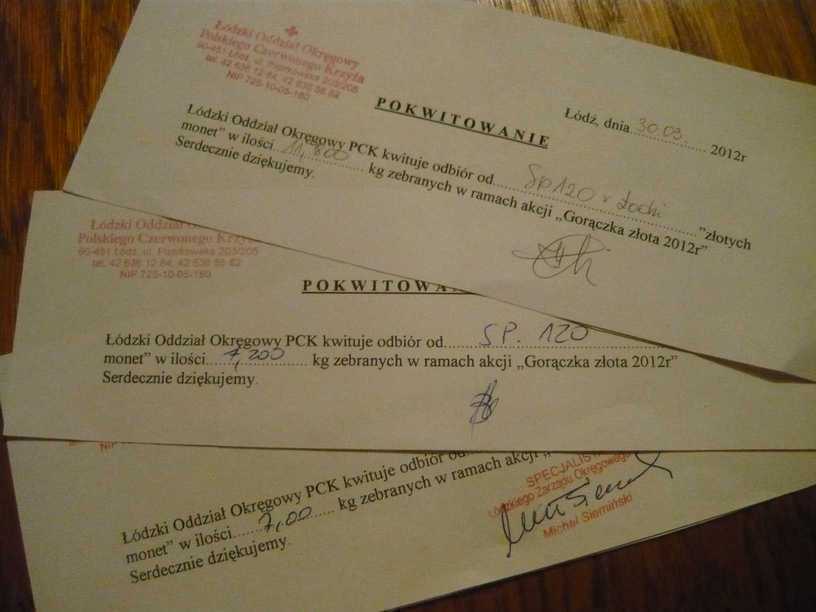 Łódzki Oddział Okręgowy
Polskiego Czerwonego Krzyża
90-451 Łódź, ul. Piotrkowska 203/205
tel. 42 636 12 84, 42 636 56 62
NIP 725-10-05-160
POKWITOWANIE
Łódź, dnia 30.03. 2012r
Łódzki Oddział Okręgowy PCK kwituje odbiór od SP 120 w Łodzi "złotych
monet" w ilości 11,800 kg zebranych w ramach akcji „Gorączka złota 2012r"
Serdecznie dziękujemy.
Łódzki Oddział Okręgowy
Polskiego Czerwonego Krzyża
90-451 Łódź, ul. Piotrkowska 203/205
tel. 42 636 12 84, 42 636 56 62
NIP 725-10-05-160
POKWITOWA
Łódzki Oddział Okręgowy PCK kwituje odbiór od SP. 120
monet" w ilości 7,200 kg zebranych w ramach akcji „Gorączka złota 2012r"
Serdecznie dziękujemy.
NIP
Łódzki Oddział Okręgowy PCK kwituje odbiór od
monet" w ilości 7,00 kg zebranych w ramach akcji „
Serdecznie dziękujemy.
SPECJALIS
Łódzkiego Zarządu Okręgowego
Michał Siemiński